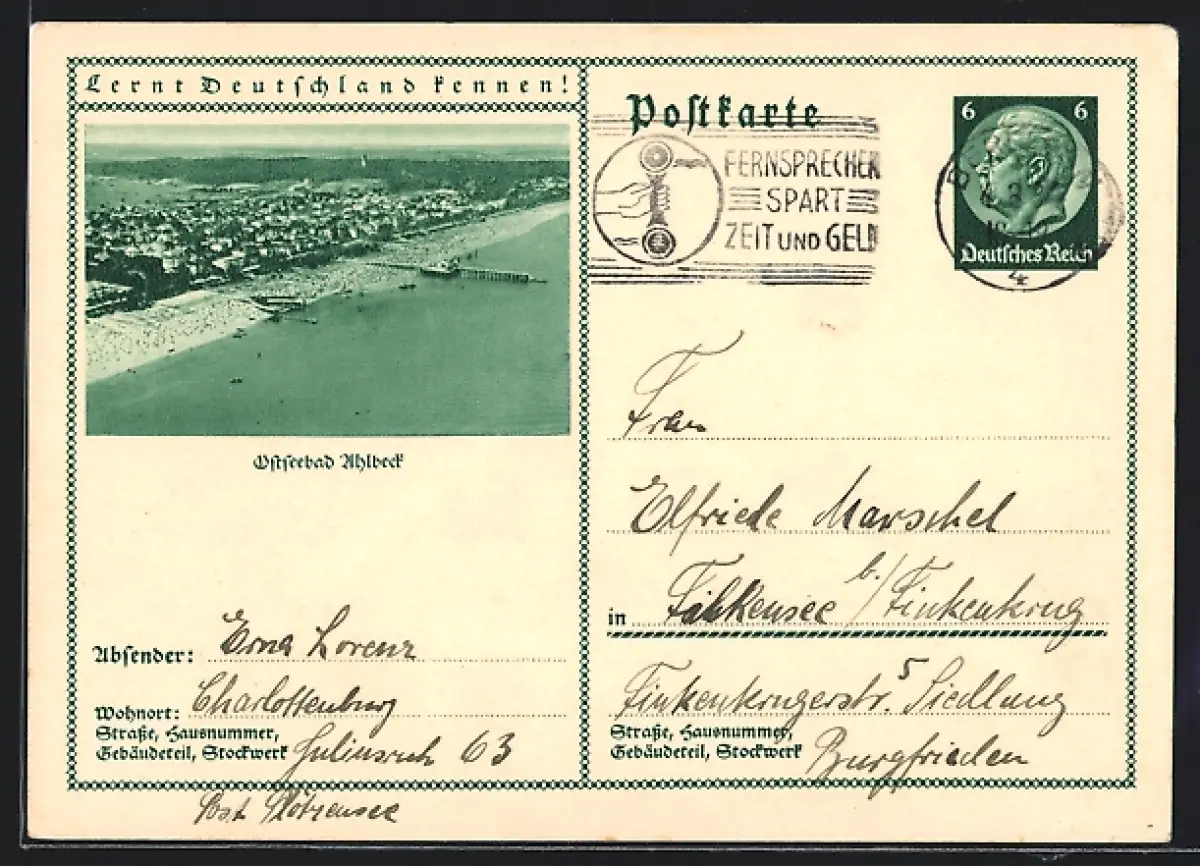 Lernt Deutschland kennen!
Ostseebad Ahlbeck
Absender: Erna Lorenz
Wohnort: Charlottenburg
Straße, Hausnummer,
Gebäudeteil, Stockwerk Juliusruh 63
Post Plötzensee
Postkarte
FERNSPRECHER
SPART
ZEIT UND GELD
6 6
Deutsches Reich
Frau
Elfriede Marschel
in Falkensee b./Finkenkrug
Finkenkrugerstr. 5 Siedlung
Straße, Hausnummer,
Gebäudeteil, Stockwerk Burgfrieden